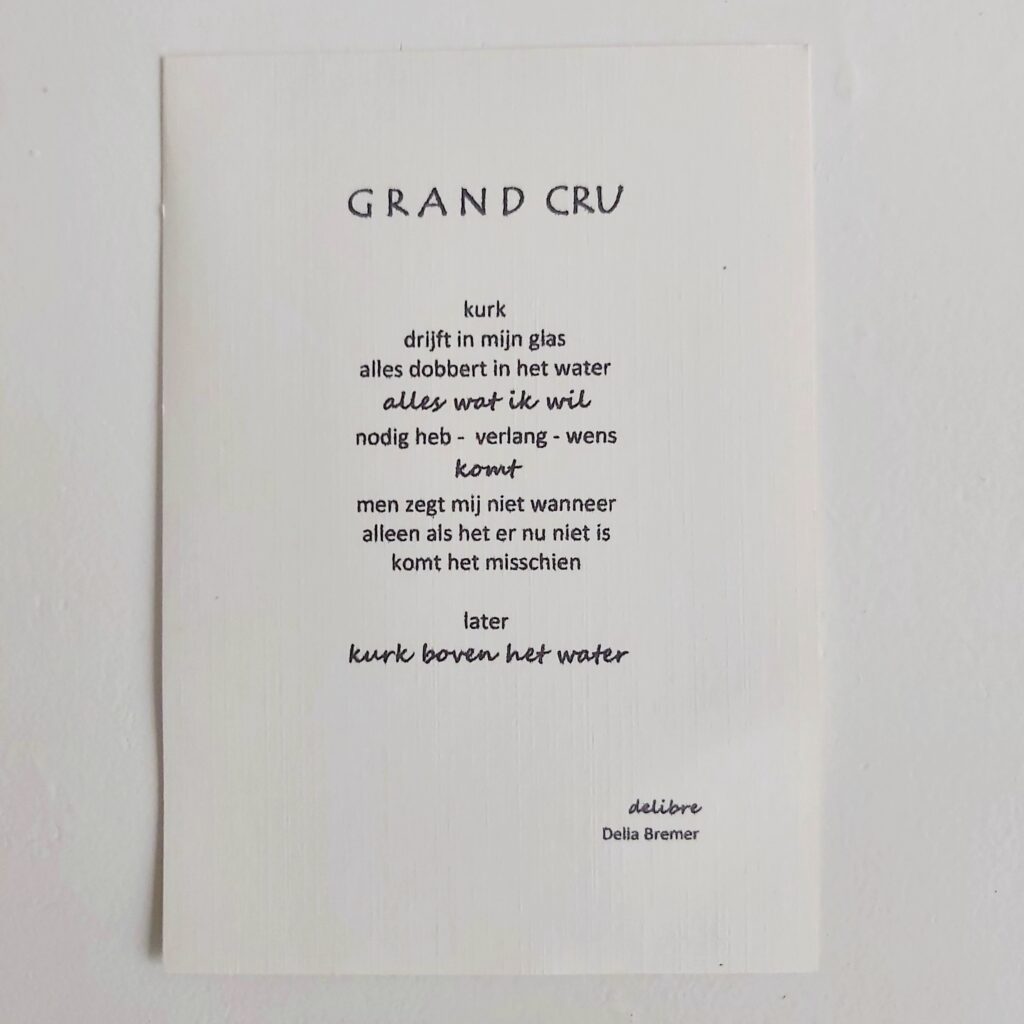 GRAND CRU
kurk
drijft in mijn glas
alles dobbert in het water
alles wat ik wil
nodig heb - verlang - wens
komt
men zegt mij niet wanneer
alleen als het er nu niet is
komt het misschien
later
kurk boven het water
delibre
Delia Bremer